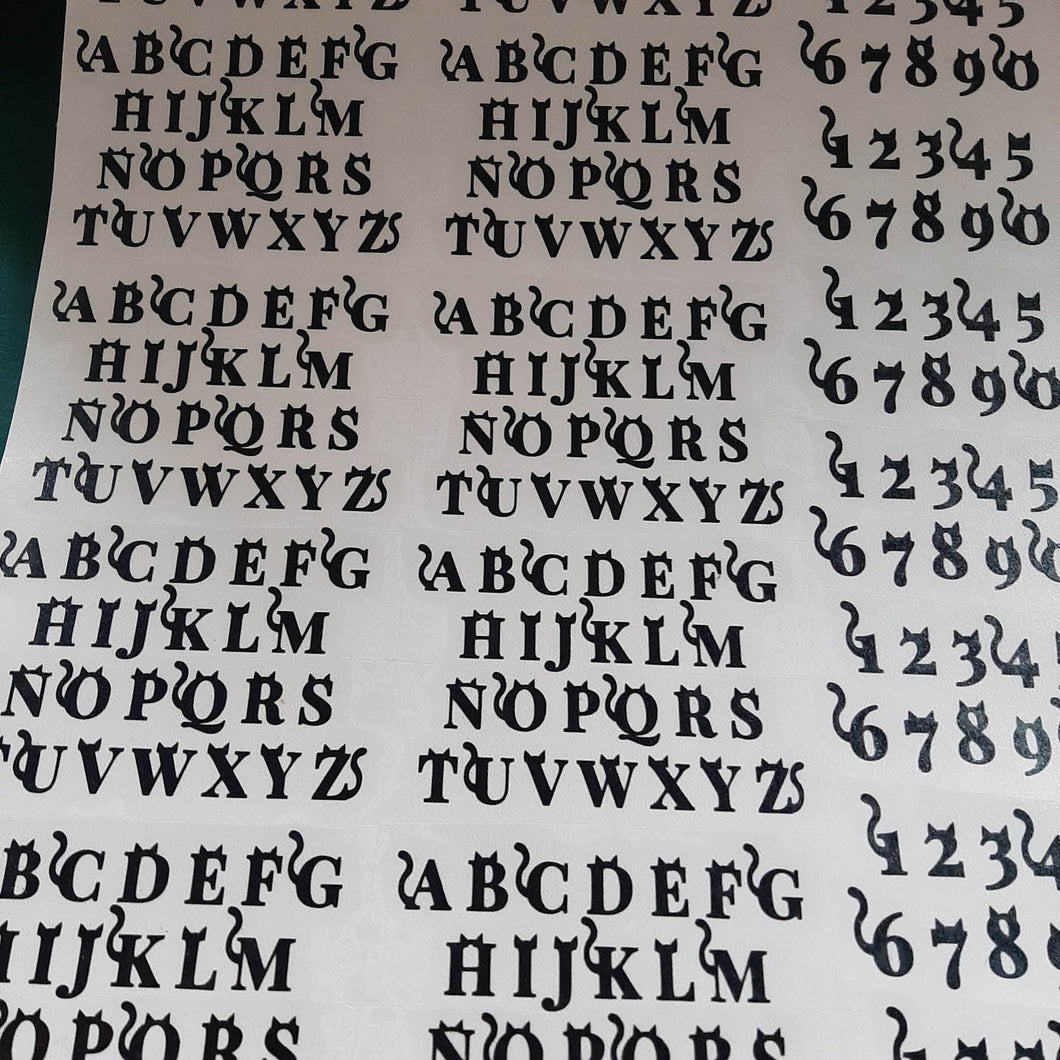 T U V W X Y Z
A B C D E F G
H I J K L M
N O P Q R S
T U V W X Y Z
A B C D E F G
H I J K L M
N O P Q R S
T U V W X Y Z
A B C D E F G
H I J K L M
N O P Q R S
T U V W X Y Z
B C D E F G
H I J K L M
O P Q R S
T U V W X Y Z
A B C D E F G
H I J K L M
N O P Q R S
T U V W X Y Z
A B C D E F G
H I J K L M
N O P Q R S
T U V W X Y Z
A B C D E F G
H I J K L M
N O P Q R S
T U V W X Y Z
A B C D E F G
H I J K L M
N O P Q R S
1 2 3 4 5
6 7 8 9 0
1 2 3 4 5
6 7 8 9 0
1 2 3 4 5
6 7 8 9 0
1 2 3 4 5
6 7 8 9 0
1 2 3 4
6 7 8 9
1 2 3 4
6 7 8